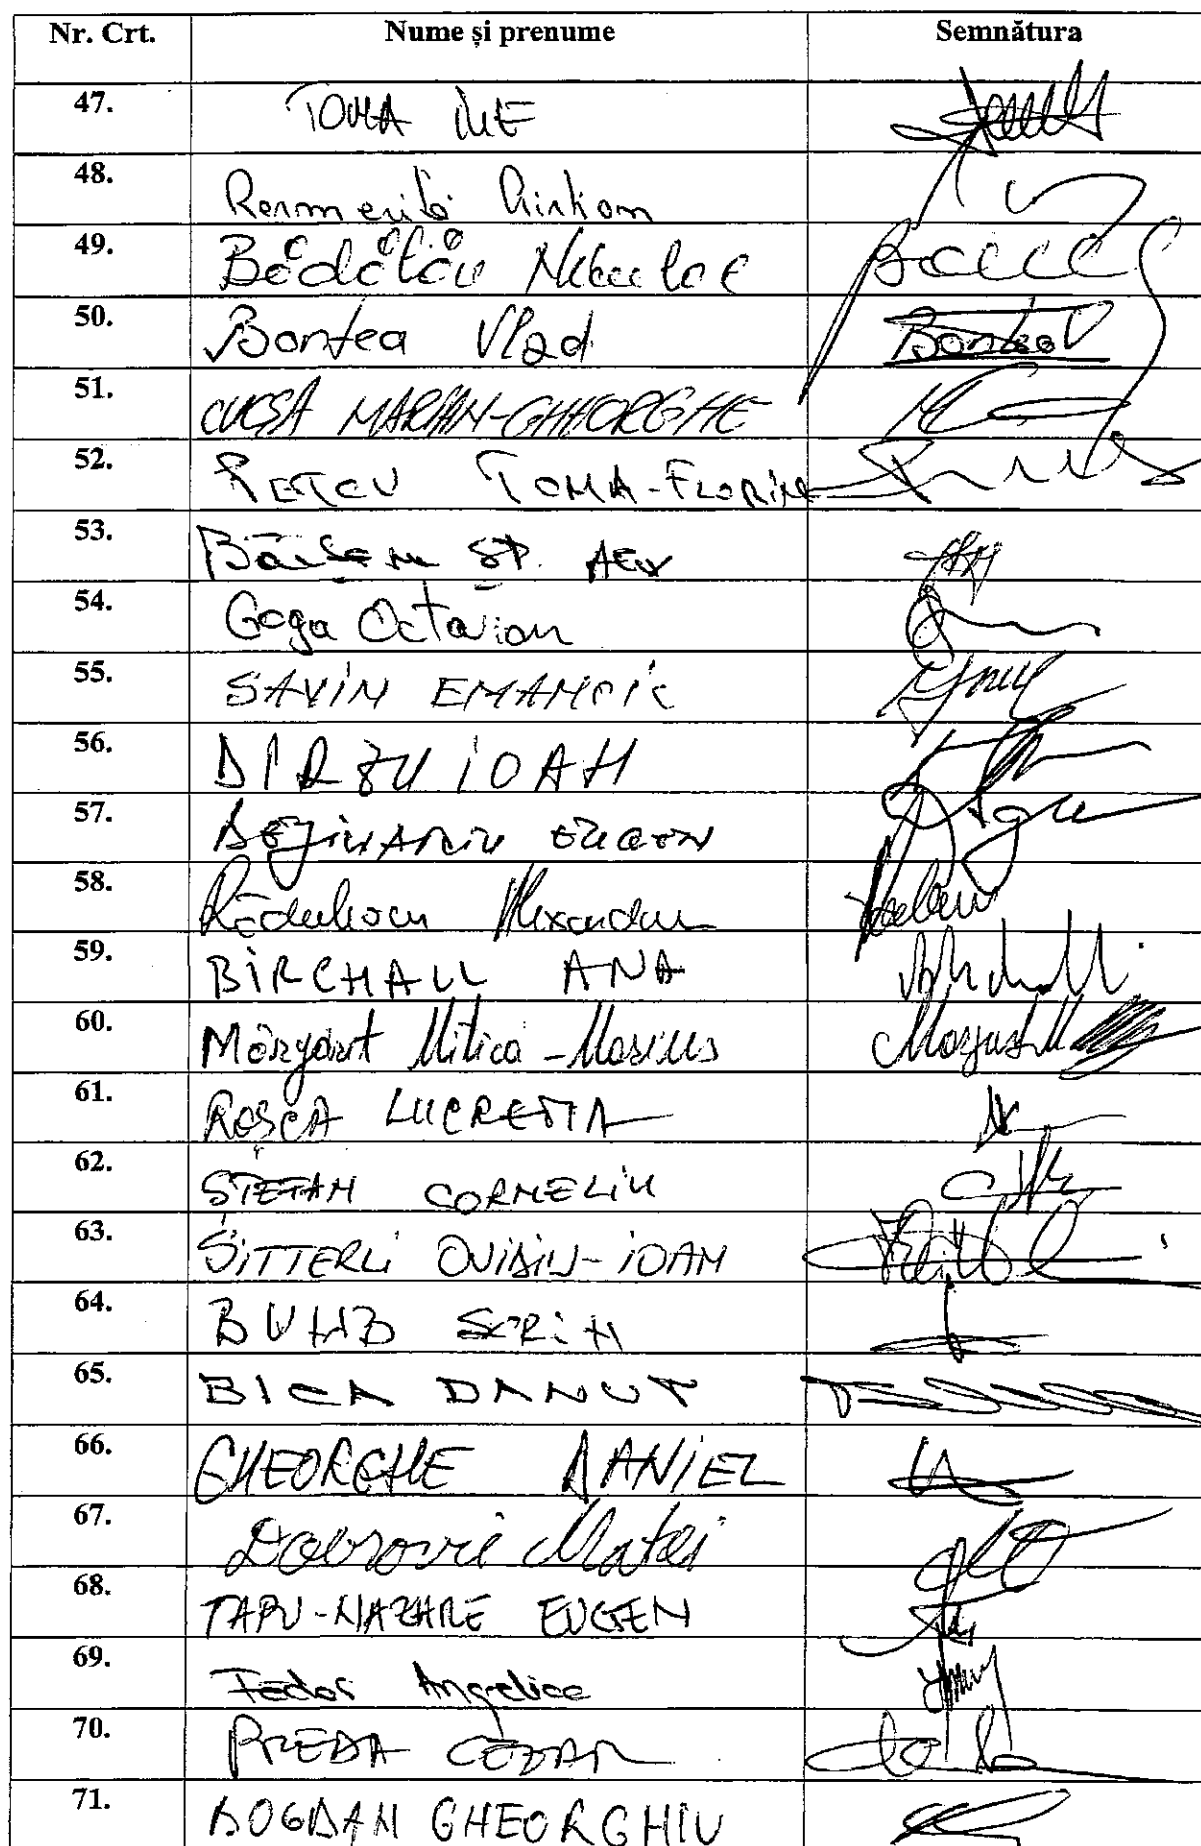 Nr. Crt. Nume și prenume Semnătura
47. TOMA ILIE
48.
49. Bădălău Niculae
50. Bontea Vlad Bontea V
51. CUCȘA MARIAN-GHEORGHE
52. PETCU TOMA-FLORIN
53.
54. Goga Octavian
55. SAVIN EMANOIL
56. DIRZU IOAN
57. BEJINARIU EUGEN
58. Rădulescu Alexandru
59. BIRCHALL ANA
60. Mărgărit Mitică-Marius
61. ROȘCA LUCREȚIA
62. ȘTEFAN CORNELIU
63. SITTERLI OVIDIU-IOAN
64. BUMB SORIN
65. BICA DANUT
66. GHEORGHE DANIEL
67. Dobrovie Matei
68. TAPU-NAZARE EUGEN
69. Fador Angelica
70. PREDA CEZAR
71. BOGDAN GHEORGHIU